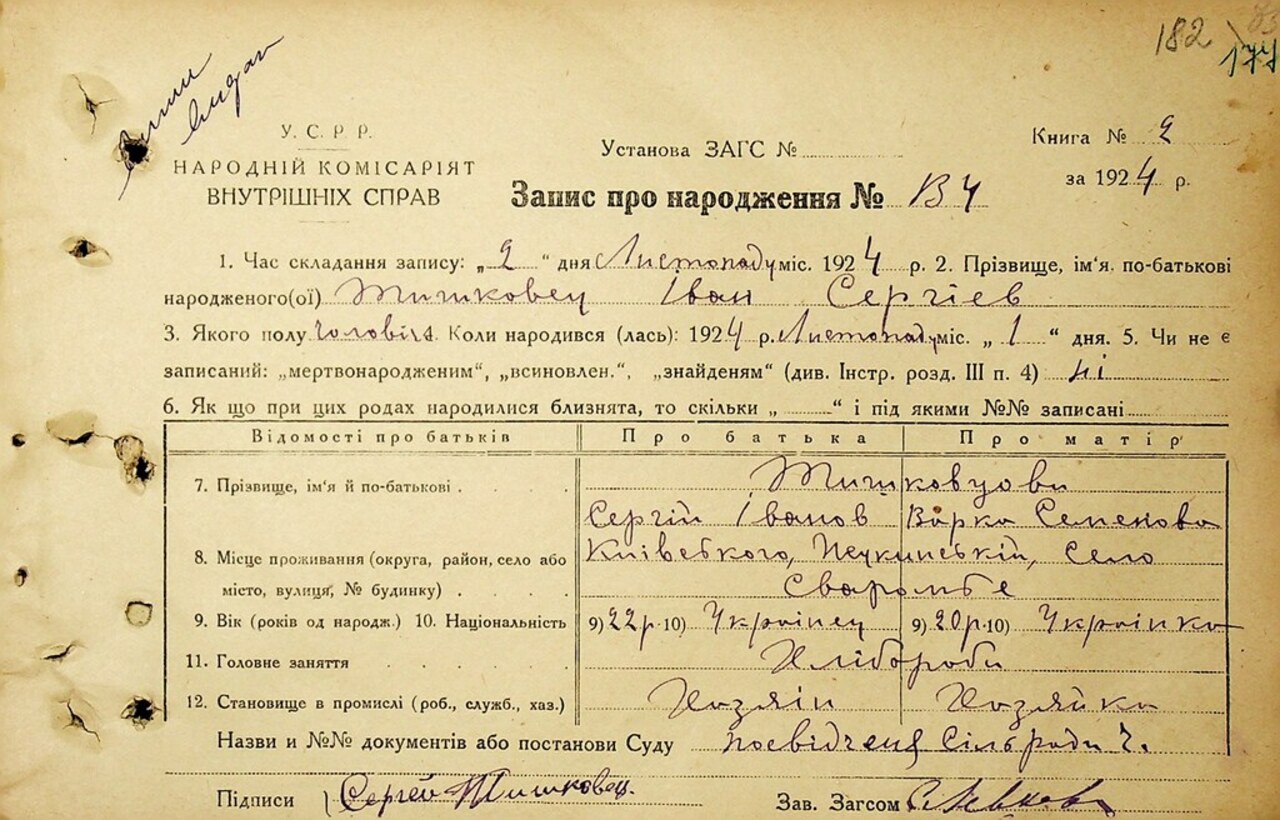 182
177
У. С. Р. Р.
НАРОДНІЙ КОМІСАРІЯТ
ВНУТРІШНІХ СПРАВ
Установа ЗАГС №
Книга № 2
за 1924 р.
Запис про народження №
1. Час складання запису: „2“ дня Листопаду міс. 1924 р. 2. Прізвище, ім'я, по-батькові
народженого(ої) Тишковец Іван Сергіев
3. Якого полу чоловіч. 4. Коли народився (лась): 1924 р. Листопаду міс. „1“ дня. 5. Чи не є
записаний: „мертвонародженим“, „всиновлен.“, „знайденям“ (див. Інстр. розд. III п. 4) ні
6. Як що при цих родах народилися близнята, то скільки „ “ і під якими №№ записані
Відомості про батьків Про батька Про матір
7. Прізвище, ім'я й по-батькові Тишковцови
Сергій Іванов Варка Семенова
8. Місце проживання (округа, район, село або Київского, село
місто, вулиця, № будинку) Сваромье
9. Вік (років од народж.) 10. Національність 9) 22 р. 10) Украінец 9) 20 р. 10) Украінка
11. Головне заняття Хлібороби
12. Становище в промислі (роб., служб., хаз.) Хозяін Хозяйка
Назви и №№ документів або постанови Суду посвідченя Сільради
Підписи Сергей Тишковец. Зав. Загсом